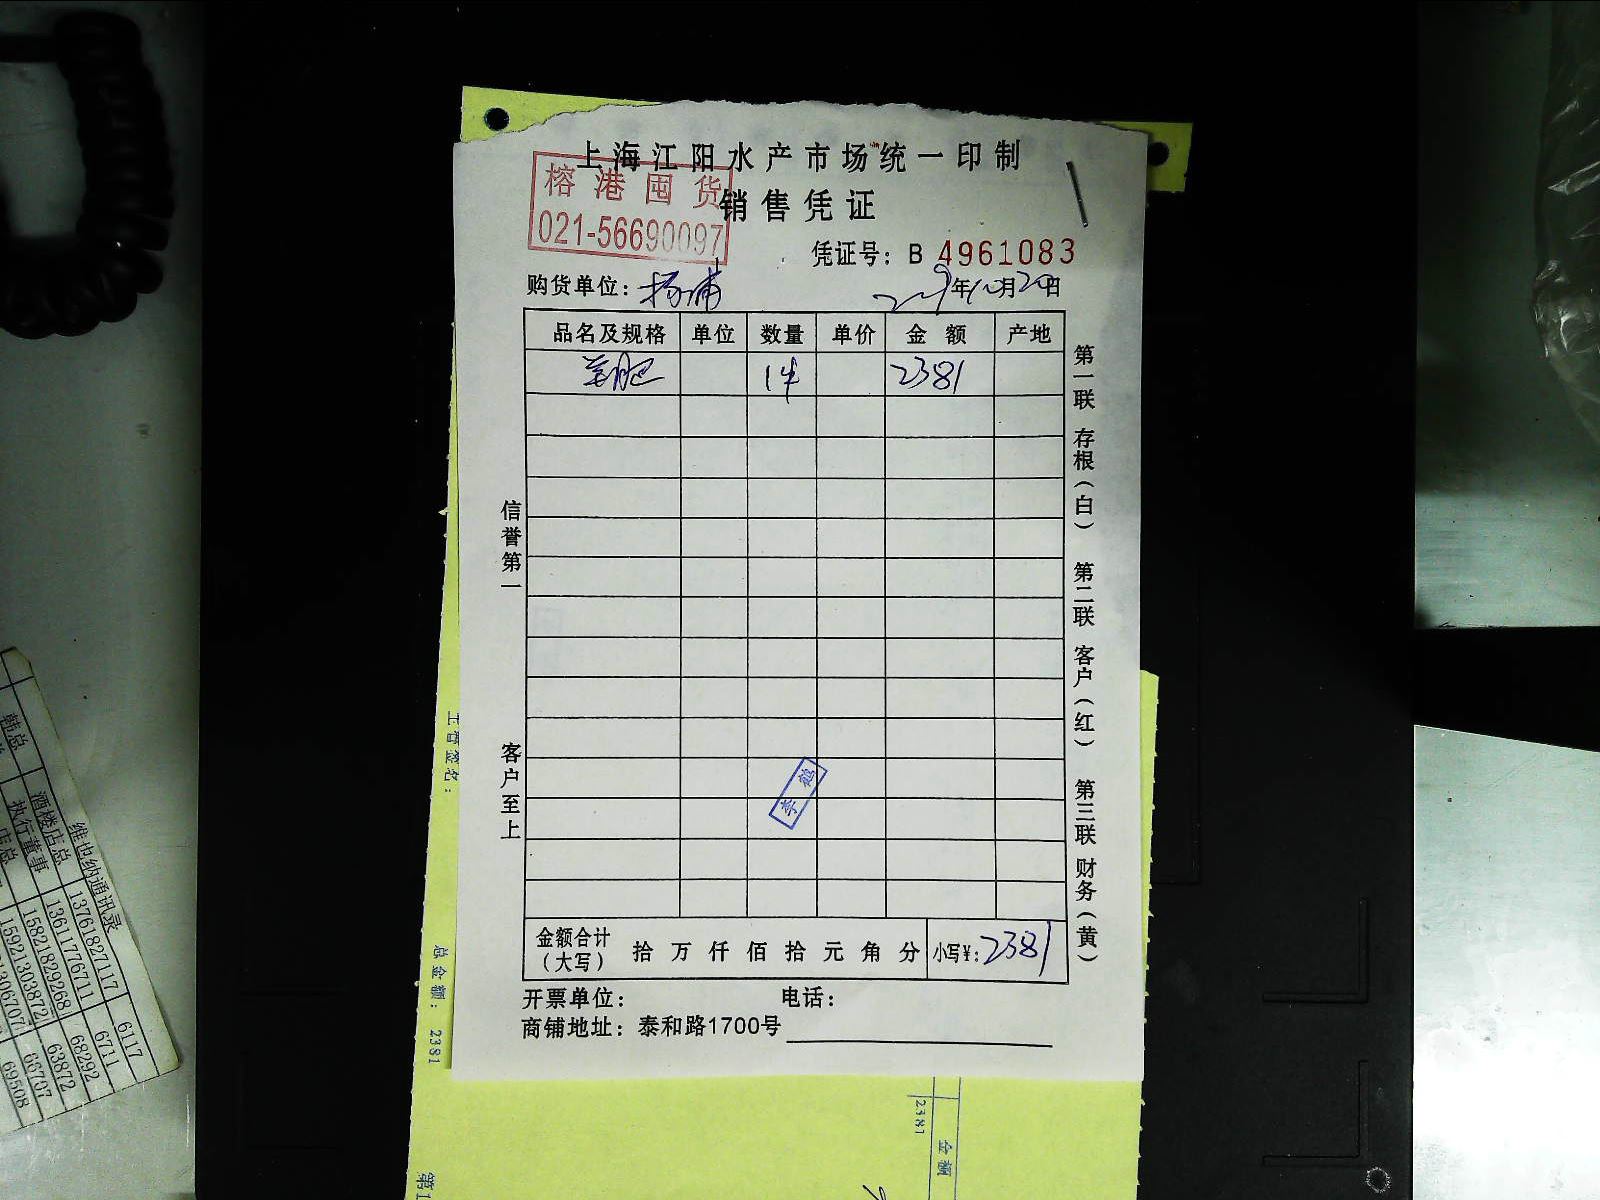 上海江阳水产市场统一印制
榕港囤货
销售凭证
021-56690097
凭证号：B 4961083
购货单位：杨浦
年10月20日
品名及规格 单位 数量 单价 金 额 产地
羔肥 1件 2381
信誉第一
客户至上
第一联 存根（白） 第二联 客户（红） 第三联 财务（黄）
金额合计（大写） 拾 万 仟 佰 拾 元 角 分 小写¥：2381
开票单位： 电话：
商铺地址：泰和路1700号
总金额： 2381
2381
金额
维也纳通讯录
韩总 酒楼店总 13761827117 6117
执行董事 13611776711 6711
15821829268 68292
15921303872 63872
66707
69508